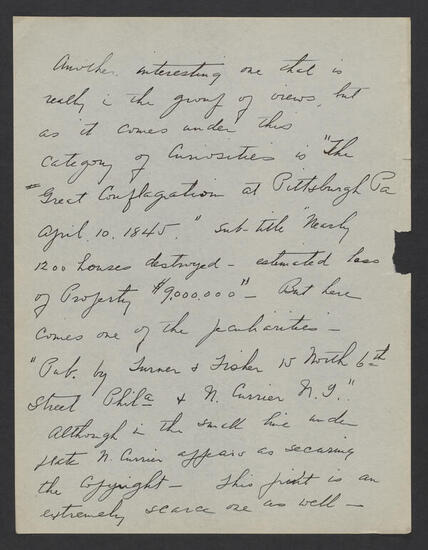 Another interesting one that is
really in the group of views, but
as it comes under this
category of Curiosities is "The
Great Conflagration at Pittsburgh Pa
April. 10. 1845." Sub-title "Nearly
1200 houses destroyed - estimated loss
of Property $9,000.000" - But here
comes one of the peculiarities -
"Pub. by Turner & Fisher 15 North 6th
Street Phila & N. Currier N.Y."
Although in the small line under
plate N. Currier appears as securing
the Copyright - This print is an
extremely scarce one as well -